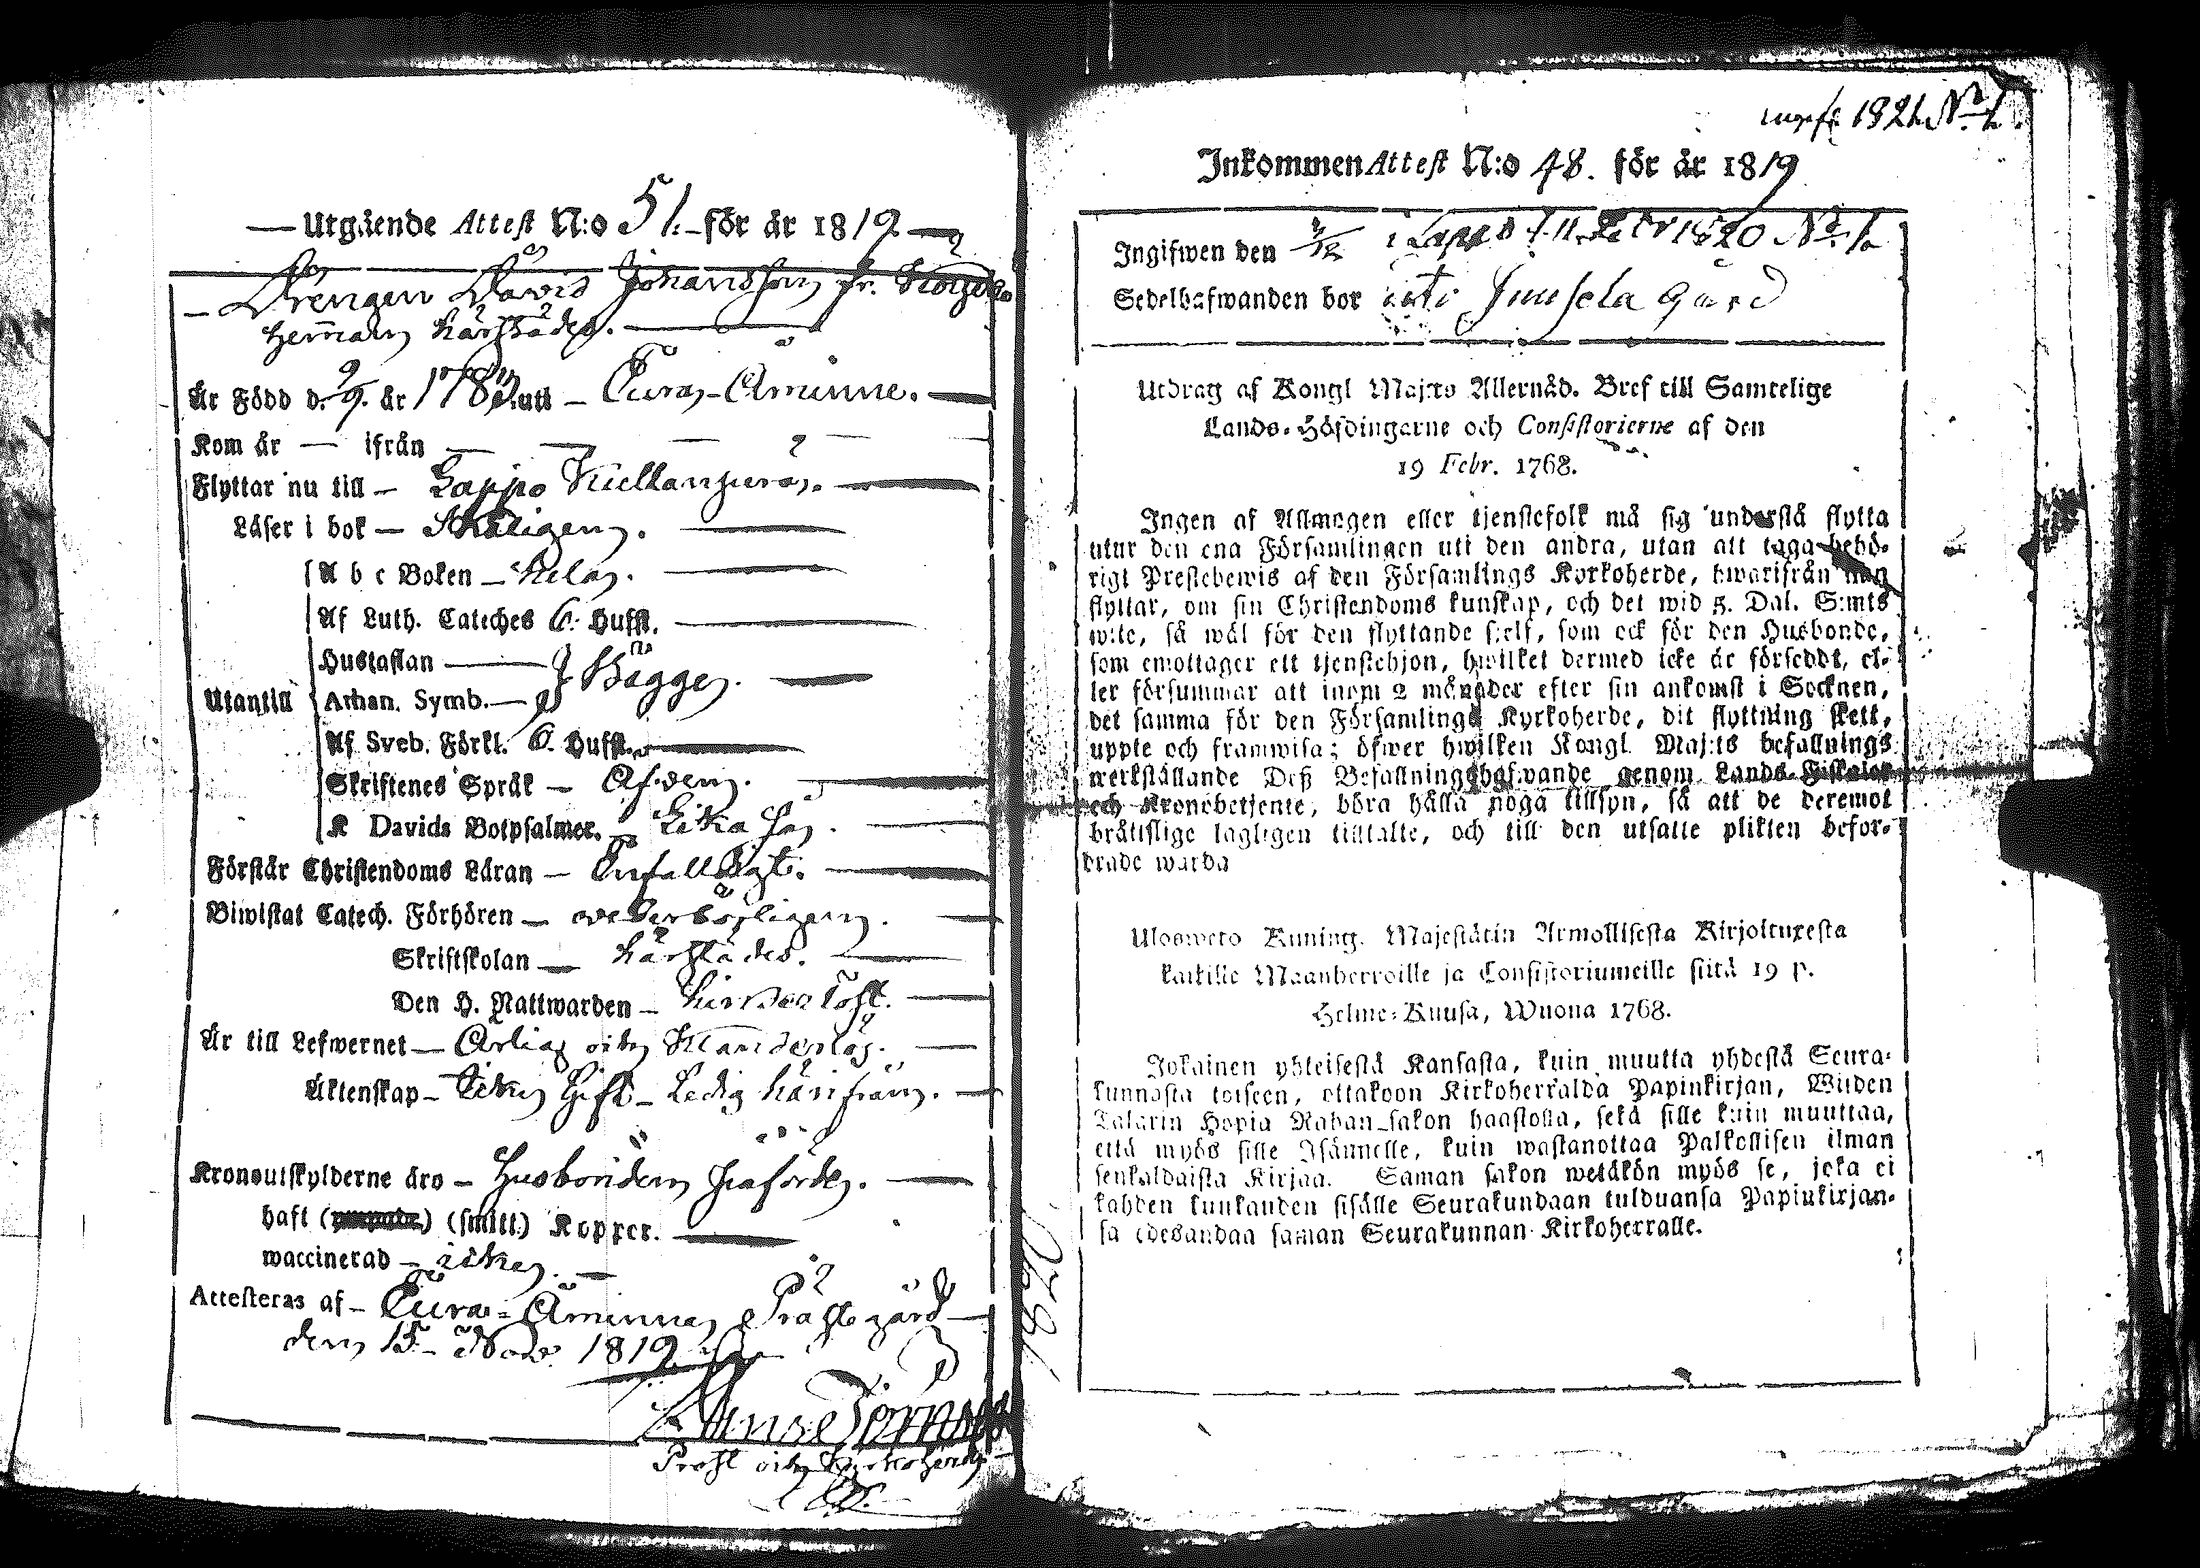 Utgående Attest N:o 51. för år 1819.
Drengen David Johansson fr.
härstädes.
Är Född d. 9/9. år 178 uti — Eura-Åminne.
Kom år — ifrån —
Flyttar nu till — Lappo
Läser i bok — Skäligen.
A b c Boken — hela.
Af Luth. Cateches 6. Hufst.
Hustaflan —
Utantill Athan. Symb. — Begge.
Af Sveb. Förkl. 6. Hufst.
Skriftenes Språk — Äfven.
K Davids Botpsalmer. — Lika så.
Förstår Christendoms Läran — Enfalldigt.
Biwistat Catech. Förhören — wederbörligen.
Skriftskolan — härstädes.
Den H. Nattwarden —
Är till Lefwernet — Ärlig och
Äktenskap — icke Gift - Ledig härifrån.
Kronoutskylderne äro — Husbonden
haft (smitt.) Koppor.
waccinerad — icke.
Attesteras af — Eura-Åminne Prästegård
den 15. Nov. 1819
Prost och Kyrkoherde
1821 N:o 1.
Inkommen Attest N:o 48. för år 1819
Ingifwen den 7/12 i Lappo 1820 N:o 1.
Sedelhafwanden bor uti Juusela Gård
Utdrag af Kongl Maj:ts Allernåd. Bref till Samtelige
Lands-Höfdingarne och Consistorierne af den
19 Febr. 1768.
Ingen af Allmogen eller tjenstefolk må sig understå flytta
utur den ena Församlingen uti den andra, utan att taga behö-
rigt Prestebewis af den Församlings Kyrkoherde, hwarifrån man
flyttar, om sin Christendoms kunskap, och det wid 5. Dal. S:mts
wite, så wäl för den flyttande sjelf, som ock för den Husbonde,
som emottager ett tjenstehjon, hwilket dermed icke är försedt, el-
ler försummar att inom 2 månader efter sin ankomst i Socknen,
det samma för den Församlings Kyrkoherde, dit flyttning skett,
uppte och framwisa; öfwer hwilken Kongl. Maj:ts befallnings
werkställande Deß Befallningshafwande genom Lands-Fiskaler
och Kronobetjente, böra hålla noga tillsyn, så att de deremot
bråttslige lagligen tilltalte, och till den utsatte plikten befor-
drade warda
Ulosweto Kuning. Majestätin Armollisesta Kirjoituxesta
kaikille Maanherroille ja Consistoriumeille siitä 19 p.
Helme-Kuusa, Wuona 1768.
Jokainen yhteisestä Kansasta, kuin muutta yhdestä Seura-
kunnasta toiseen, ottakoon Kirkoherralda Papinkirjan, Wiiden
Talarin Hopia Rahan sakon haastolla, sekä sille kuin muuttaa,
että myös sille Isännelle, kuin wastanottaa Palkollisen ilman
senkaldaista Kirjaa. Saman sakon wetäkön myös se, joka ei
kahden kuukauden sisälle Seurakundaan tulduansa Papinkirjan-
sa edesandaa saman Seurakunnan Kirkoherralle.